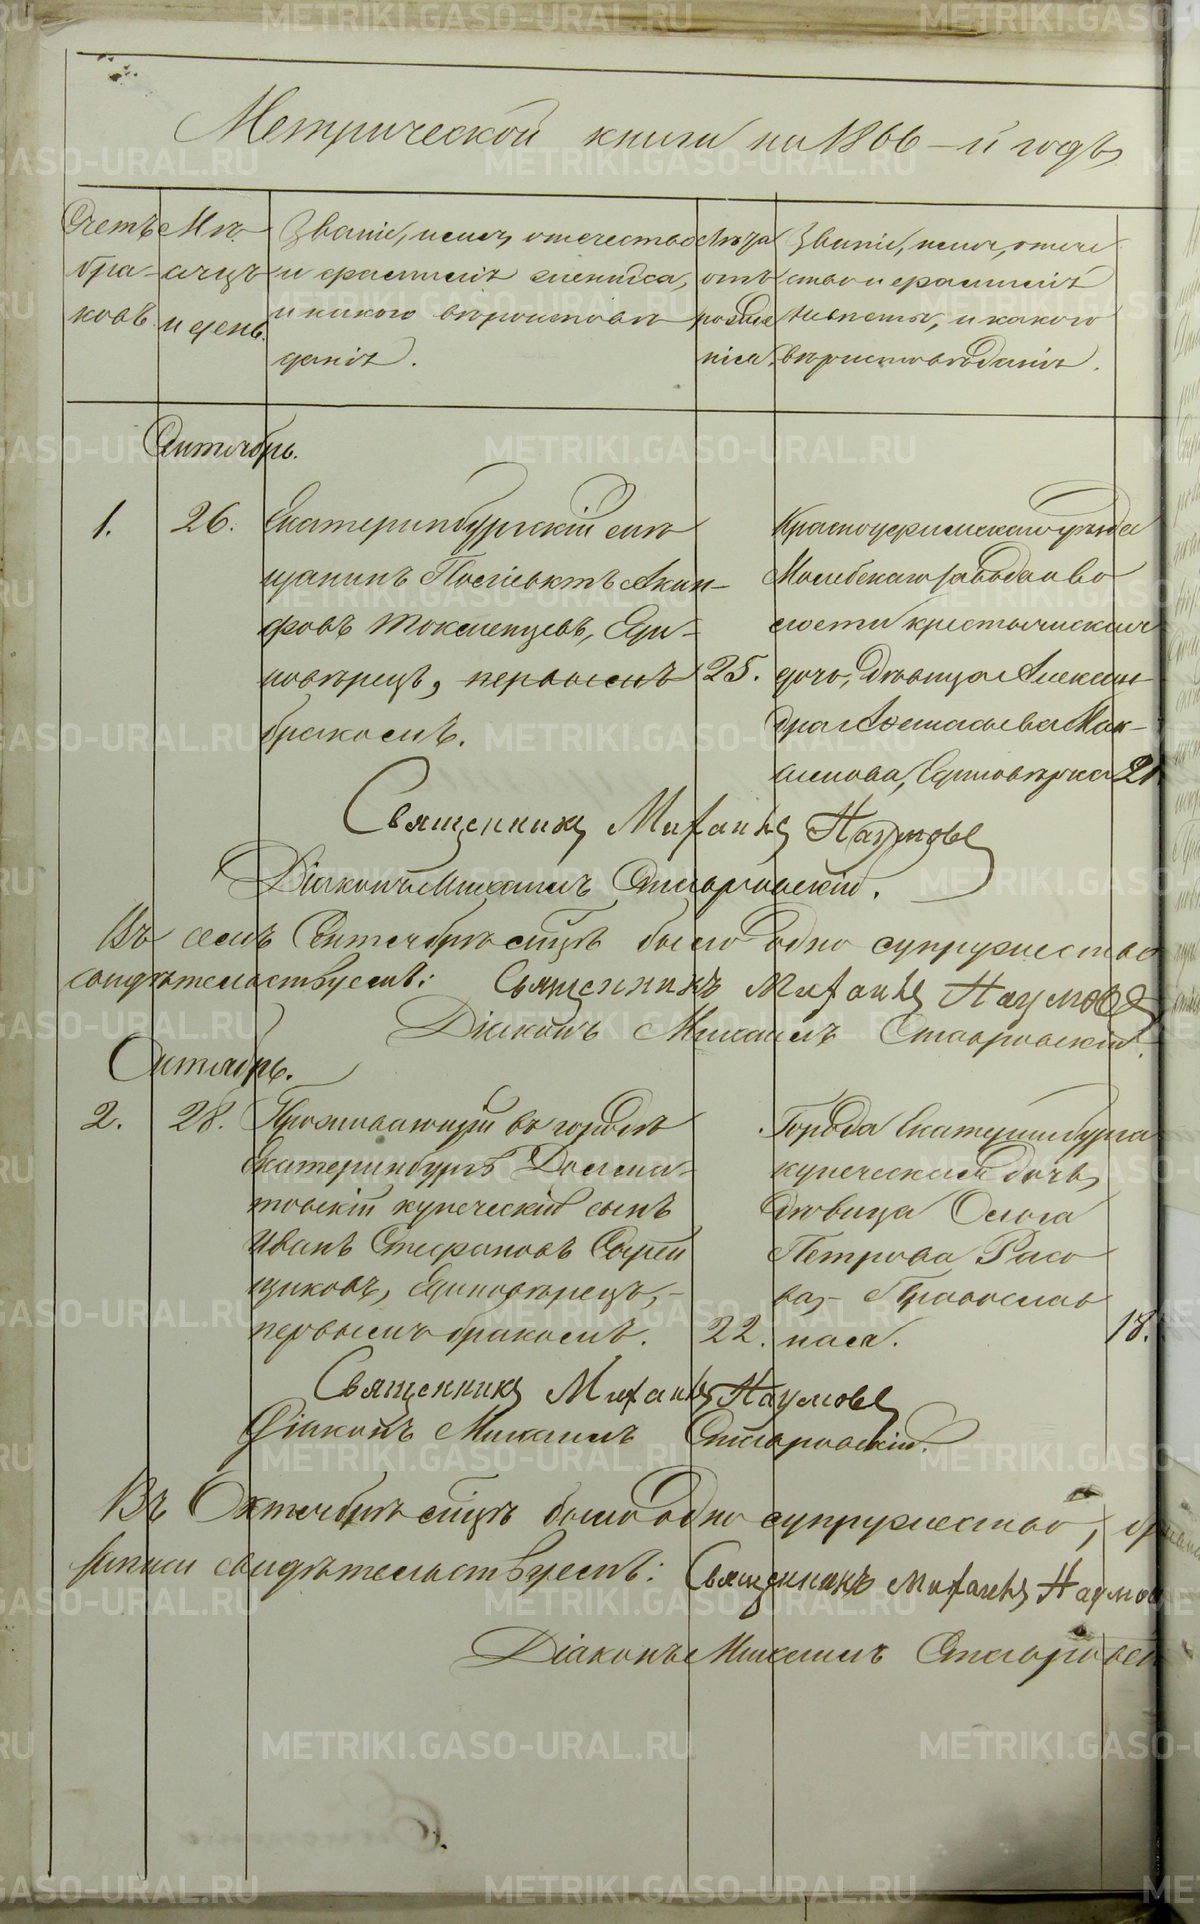 METRIKI.GASO-URAL.RU
Метрической книги на 1866-й годъ
Счетъ бра-ковъ
Мѣ-сяцъ и день.
Званіе, имя, отечество
и фамилія жениха,
и какого вѣроисповѣ
данія.
Лѣта отъ рожде нія.
Званіе, имя, отече
ство и фамилія
невѣсты, и какого
вѣроисповѣданія.
Сентябрь.
1. 26.
Екатеринбургскій мѣ
щанинъ Акин-
фовъ Токменцевъ, Еди-
новѣрецъ, первымъ
бракомъ.
25.
Красноуфимскаго уѣзда
Молебскаго завода и во
лости крестьянская
дочь, дѣвица Алексан
дра Максимова, Единовѣрка
21
Священникъ Михаилъ Наумовъ
Діаконъ Михаилъ Ставровскій.
Въ семъ Сентябрѣ мѣсяцѣ было одно супружество
свидѣтельствуемъ: Священникъ Михаилъ Наумовъ
Діаконъ Михаилъ Ставровскій.
Октябрь.
2. 28.
Проживающій въ городѣ
Екатеринбургѣ Долма-
товскій купеческій сынъ
Иванъ Стефановъ
Единовѣрецъ,-
первымъ бракомъ.
22.
Города Екатеринбурга
купеческая дочь,
дѣвица Ольга
Петрова
Православ
ная.
18.
Священникъ Михаилъ Наумовъ
Діаконъ Михаилъ Ставровскій.
Въ Октябрѣ мѣсяцѣ было одно супружество,
записи свидѣтельствуемъ: Священникъ Михаилъ Наумов
Діаконъ Михаилъ Ставровск